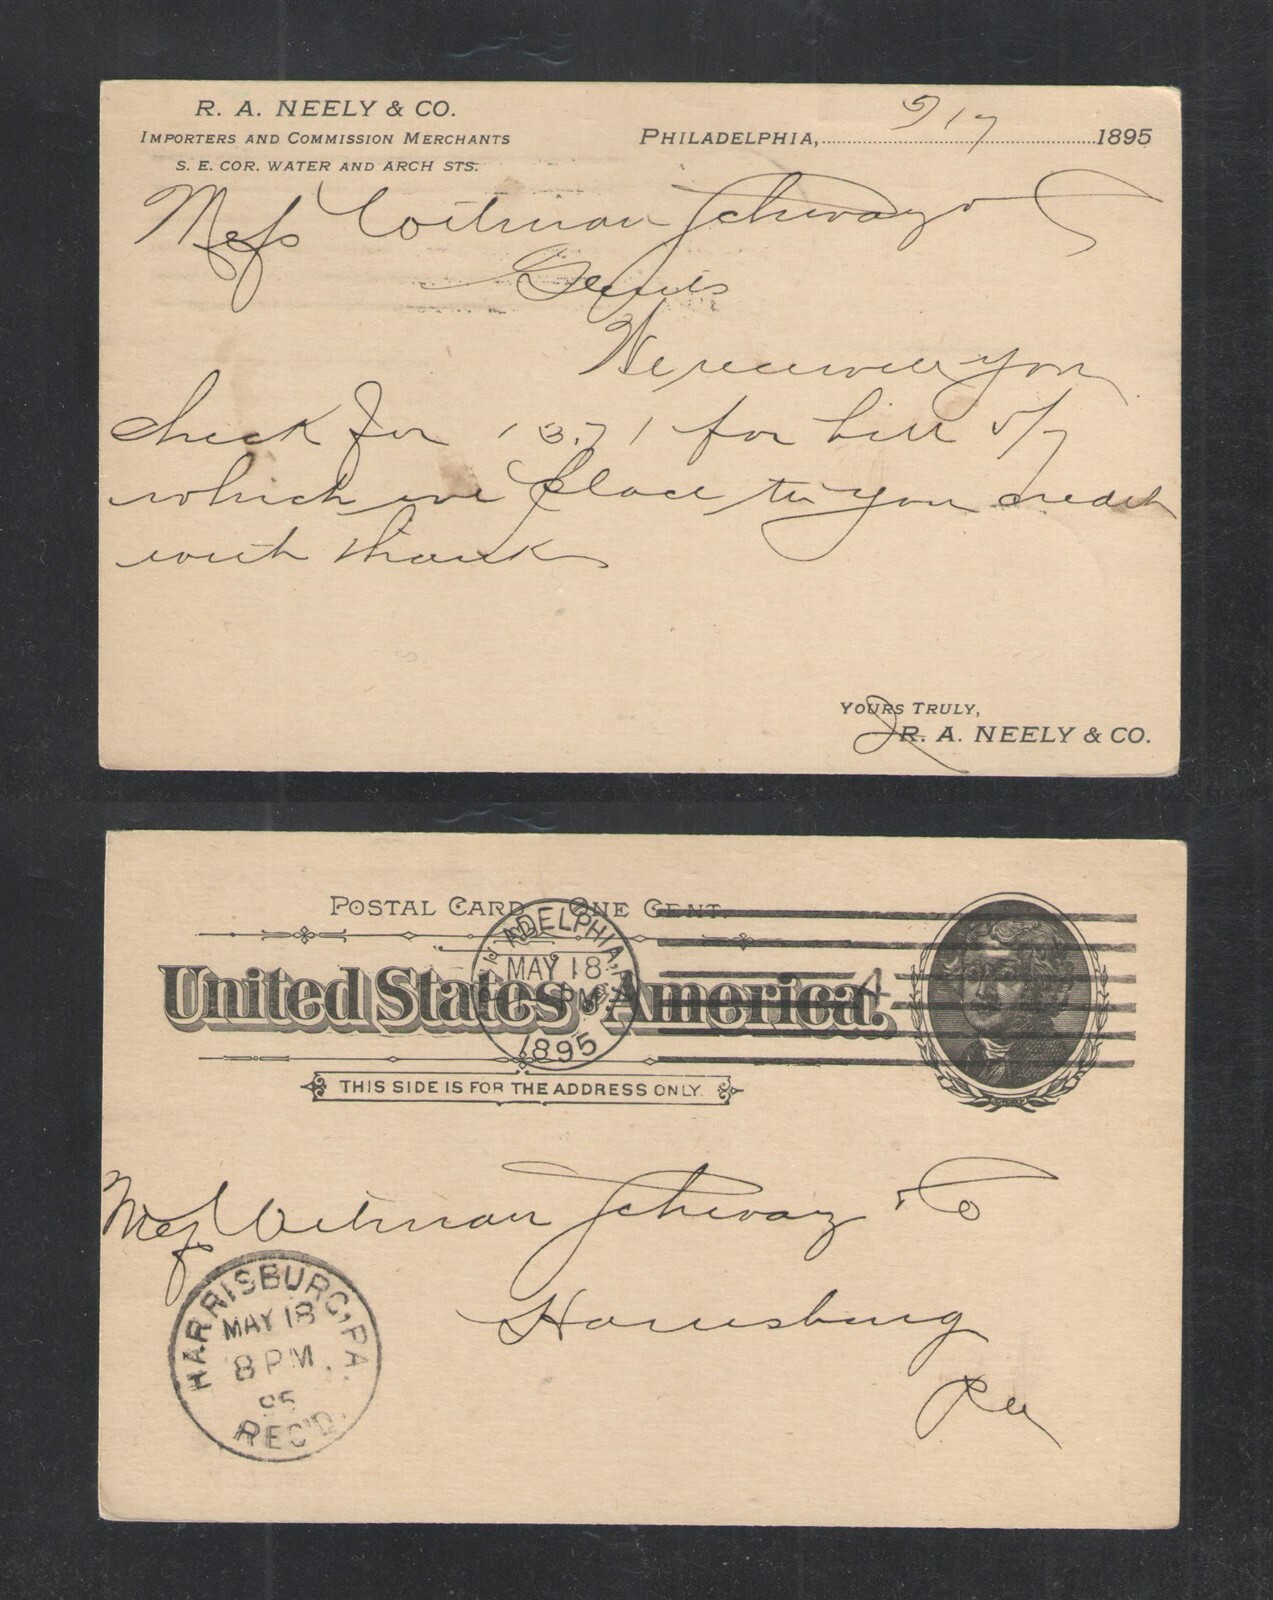 R. A. NEELY & CO.
IMPORTERS AND COMMISSION MERCHANTS
S. E. COR. WATER AND ARCH STS.
PHILADELPHIA, 5/17 1895
Mess Witman Schwarz
Gents
We received your
check for 13.71 for bill 5/7
which we place to your credit
with thanks
YOURS TRULY,
R. A. NEELY & CO.
POSTAL CARD ONE CENT.
United States of America.
THIS SIDE IS FOR THE ADDRESS ONLY.
PHILADELPHIA, PA
MAY 18
PM
1895
4
Mess Witman Schwarz & Co
Harrisburg
Pa
HARRISBURG, PA.
MAY 18
8 PM
95
REC'D.